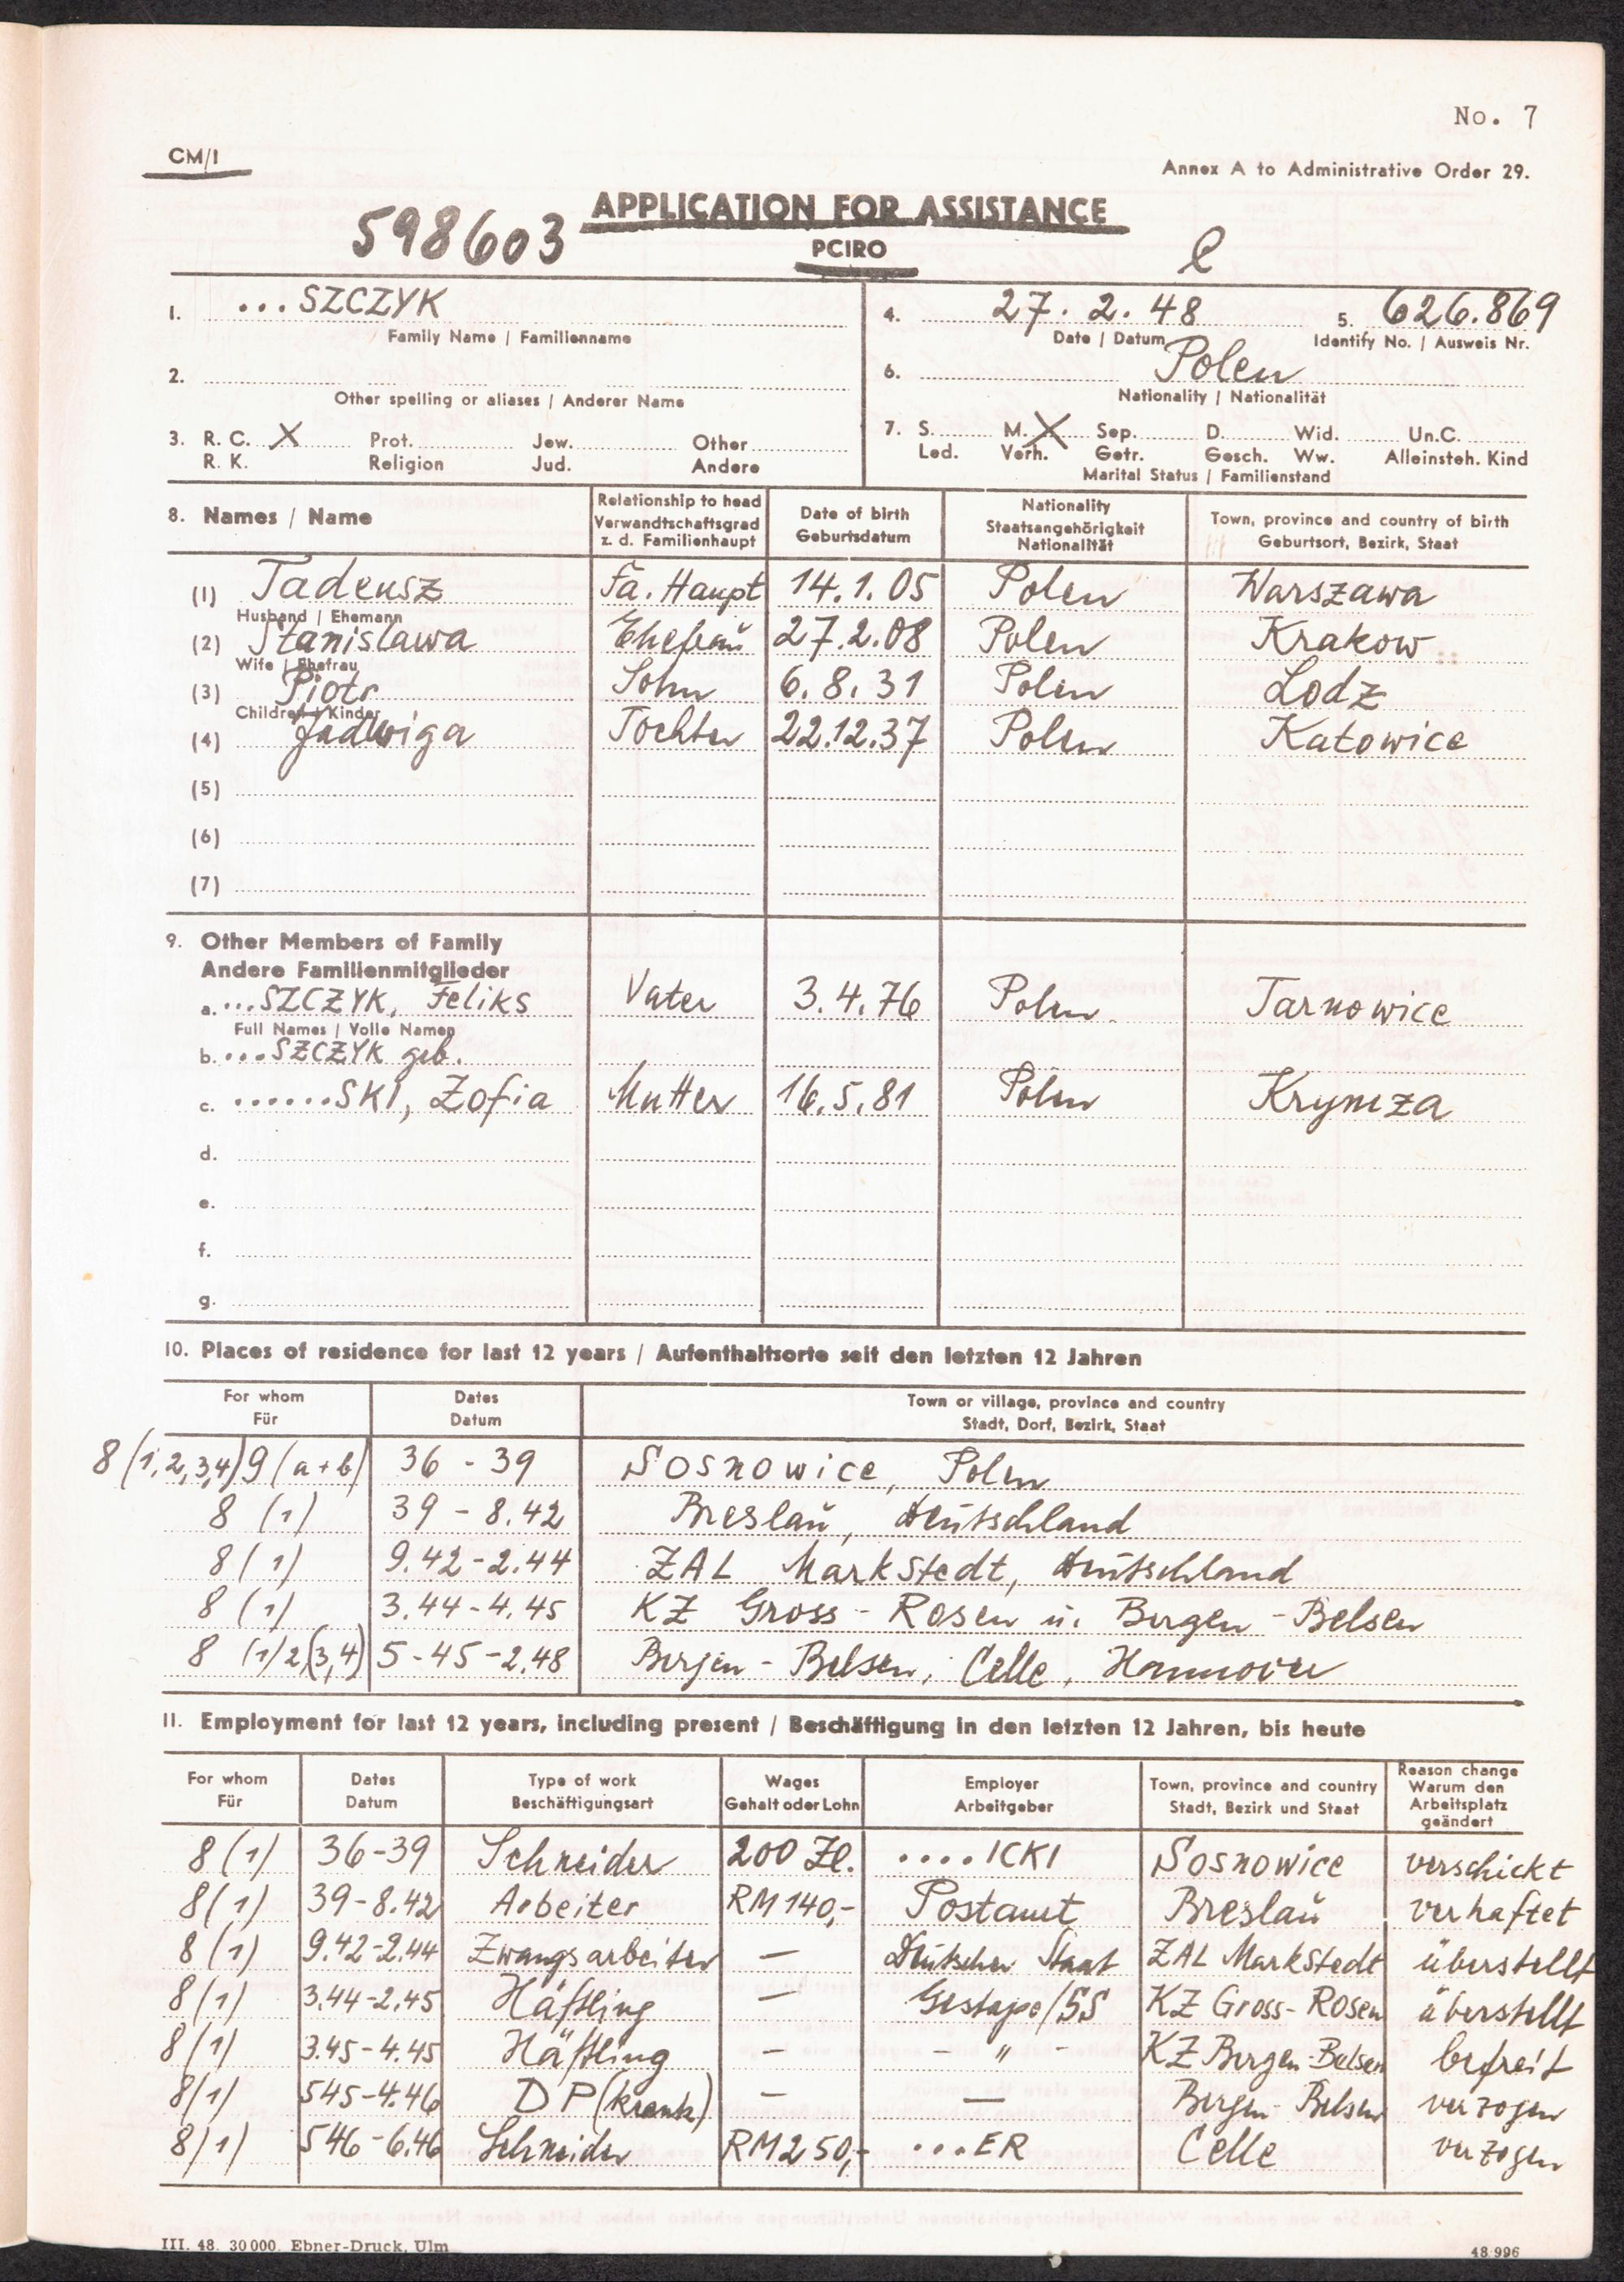 No. 7
CM/1
Annex A to Administrative Order 29.
APPLICATION FOR ASSISTANCE
598603
PCIRO
1. ...SZCZYK
Family Name / Familienname
4. 27. 2. 48 5. 626.869
Date / Datum Identify No. / Ausweis Nr.
2.
Other spelling or aliases / Anderer Name
6. Polen
Nationality / Nationalität
3. R. C. X Prot. Jew. Other
R. K. Religion Jud. Andere
7. S. M. X Sep. D. Wid. Un.C.
Led. Verh. Getr. Gesch. Ww. Alleinsteh. Kind
Marital Status / Familienstand
8. Names / Name
Relationship to head
Verwandtschaftsgrad
z. d. Familienhaupt
Date of birth
Geburtsdatum
Nationality
Staatsangehörigkeit
Nationalität
Town, province and country of birth
Geburtsort, Bezirk, Staat
(1) Tadeusz Fa. Haupt 14.1.05 Polen Warszawa
Husband / Ehemann
(2) Stanislawa Ehefrau 27.2.08 Polen Krakow
Wife / Ehefrau
(3) Piotr Sohn 6.8.31 Polen Lodz
Children / Kinder
(4) Jadwiga Tochter 22.12.37 Polen Katowice
(5)
(6)
(7)
9. Other Members of Family
Andere Familienmitglieder
a. ...SZCZYK, Feliks Vater 3.4.76 Polen Tarnowice
Full Names / Volle Namen
b. ...SZCZYK geb.
c. ......SKI, Zofia Mutter 16.5.81 Polen Kryniza
d.
e.
f.
g.
10. Places of residence for last 12 years / Aufenthaltsorte seit den letzten 12 Jahren
For whom
Für
Dates
Datum
Town or village, province and country
Stadt, Dorf, Bezirk, Staat
8 (1,2,3,4) 9 (a+b) 36 - 39 Sosnowice, Polen
8 (1) 39 - 8.42 Breslau, Deutschland
8 (1) 9.42-2.44 ZAL Markstedt, Deutschland
8 (1) 3.44-4.45 KZ Gross-Rosen u. Bergen-Belsen
8 (1) 2 (3,4) 5-45-2.48 Bergen-Belsen, Celle, Hannover
11. Employment for last 12 years, including present / Beschäftigung in den letzten 12 Jahren, bis heute
For whom
Für
Dates
Datum
Type of work
Beschäftigungsart
Wages
Gehalt oder Lohn
Employer
Arbeitgeber
Town, province and country
Stadt, Bezirk und Staat
Reason change
Warum den
Arbeitsplatz
geändert
8 (1) 36-39 Schneider 200 Zl. ....ICKI Sosnowice verschickt
8 (1) 39-8.42 Arbeiter RM 140,- Postamt Breslau verhaftet
8 (1) 9.42-2.44 Zwangsarbeiter — Deutscher Staat ZAL Markstedt überstellt
8 (1) 3.44-2.45 Häftling — Gestapo/SS KZ Gross-Rosen überstellt
8 (1) 3.45-4.45 Häftling - - " - KZ Bergen-Belsen befreit
8 (1) 545-4.46 DP (krank) — — Bergen-Belsen verzogen
8 (1) 546-6.46 Schneider RM 250,- ...ER Celle verzogen
III. 48. 30 000. Ebner-Druck, Ulm
48 996